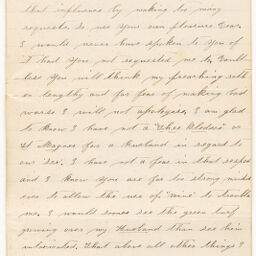 that influence by making too many
requests. so use your own pleasure Dear.
I would never have spoken to you of
it had you not requested me to. Doubt
less you will think my preaching rath
er lengthy and for fear of making bad
worse I will not apologize. I am glad
to know I have not a "Chas
of Magnes for a Husband in regard to
our sex. I have not a fear in that respect
and I know you are far too strong minded
ever to allow the use of "wine" to trouble
me. I would sooner see the green turf
growing over my Husband than see him
intoxicated. That above all other things I